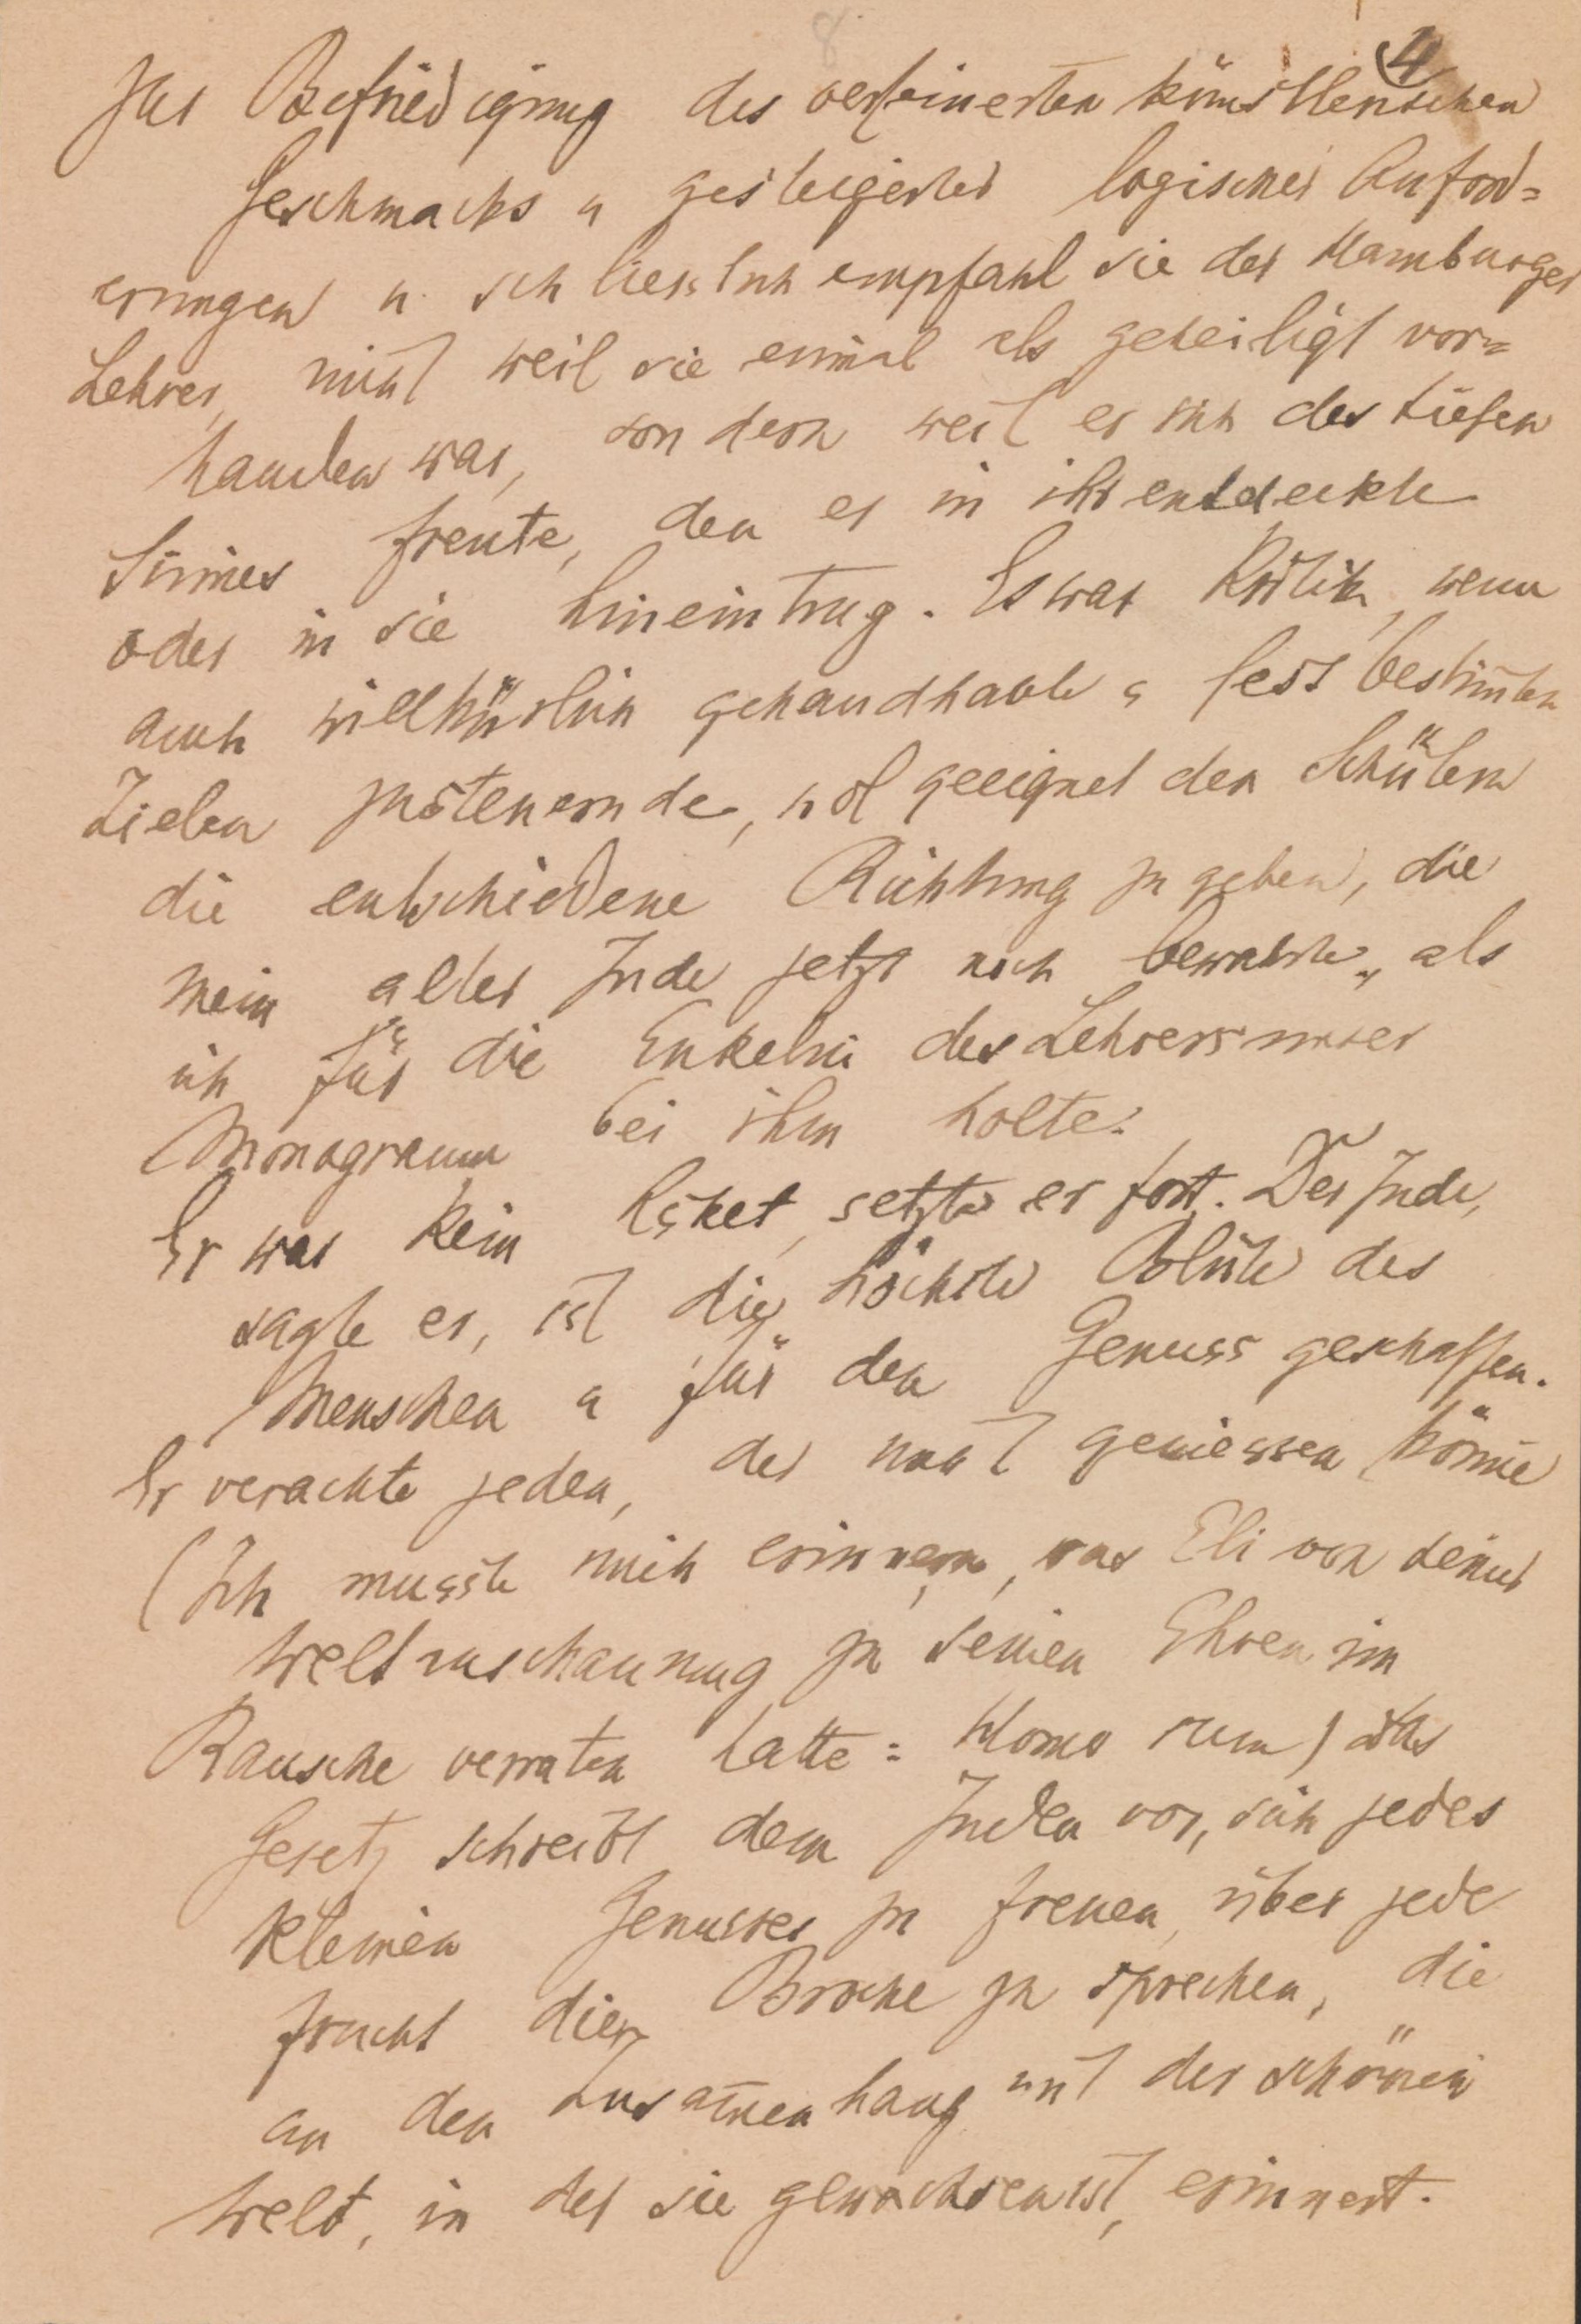 8
4
zur Befriedigung des verfeinerten künstlerischen
Geschmacks u gesteigerter logischer Anford=
erungen u. schliesslich empfahl sie der Hamburger
Lehrer, nicht weil sie einmal als geheiligt vor=
handen war, sondern weil er sich des tiefen
Sinnes freute, den er in ihr entdeckte
oder in sie hineintrug. Es war Kritik, wenn
auch willkürlich gehandhabte u fest bestim̄ten
Zielen zusteuernde, wol geeignet den Schülern
die entschiedene Richtung zu geben, die
mein alter Jude jetzt noch bewahrte, als
ich für die Enkelin des Lehrers unser
Monogramm bei ihm holte.
Er war kein Asket, setzte er fort. Der Jude,
sagte er, ist die höchste Blüte des
Menschen u für den Genuss geschaffen.
Er verachte jeden, der nicht geniessen kön̄e
(Ich musste mich erinnern, was Eli von seiner
Weltanschauung zu seinen Ehren im
Rausche verraten hatte: Homo sum) das
Gesetz schreibt dem Juden vor, sich jedes
kleinen Genusses zu freuen, über jede
Frucht die Broche zu sprechen, die
an den Zusam̄enhang mit der schönen
Welt, in der sie gewachsen ist, erinnert.